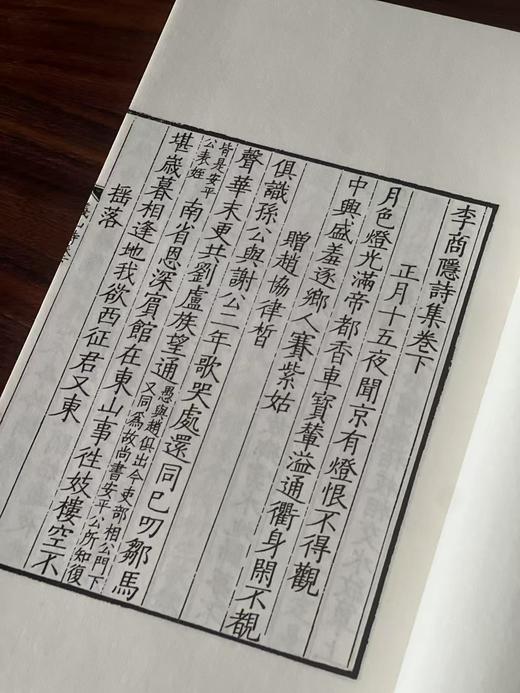 李商隱詩集卷下
正月十五夜聞京有燈恨不得觀
月色燈光滿帝都香車寶輦溢通衢身閑不覩
中興盛羞逐鄉人賽紫姑
贈趙協律晳
俱識孫公與謝公二年歌哭處還同巳叨鄒馬
聲華末更共劉盧族望通
愚與趙俱出今吏部相公門下
又同爲故尚書安平公所知復
皆是安平
公表姪
南省恩深賓館在東山事徃妓樓空不
堪歲暮相逢地我欲西征君又東
搖落